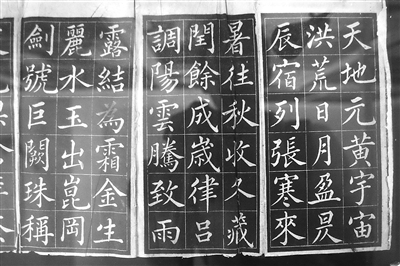 天地元黃宇宙
洪荒日月盈昃
辰宿列張寒來
暑往秋收冬藏
閏餘成歲律呂
調陽雲騰致雨
露結為霜金生
麗水玉出崑岡
劍號巨闕珠稱